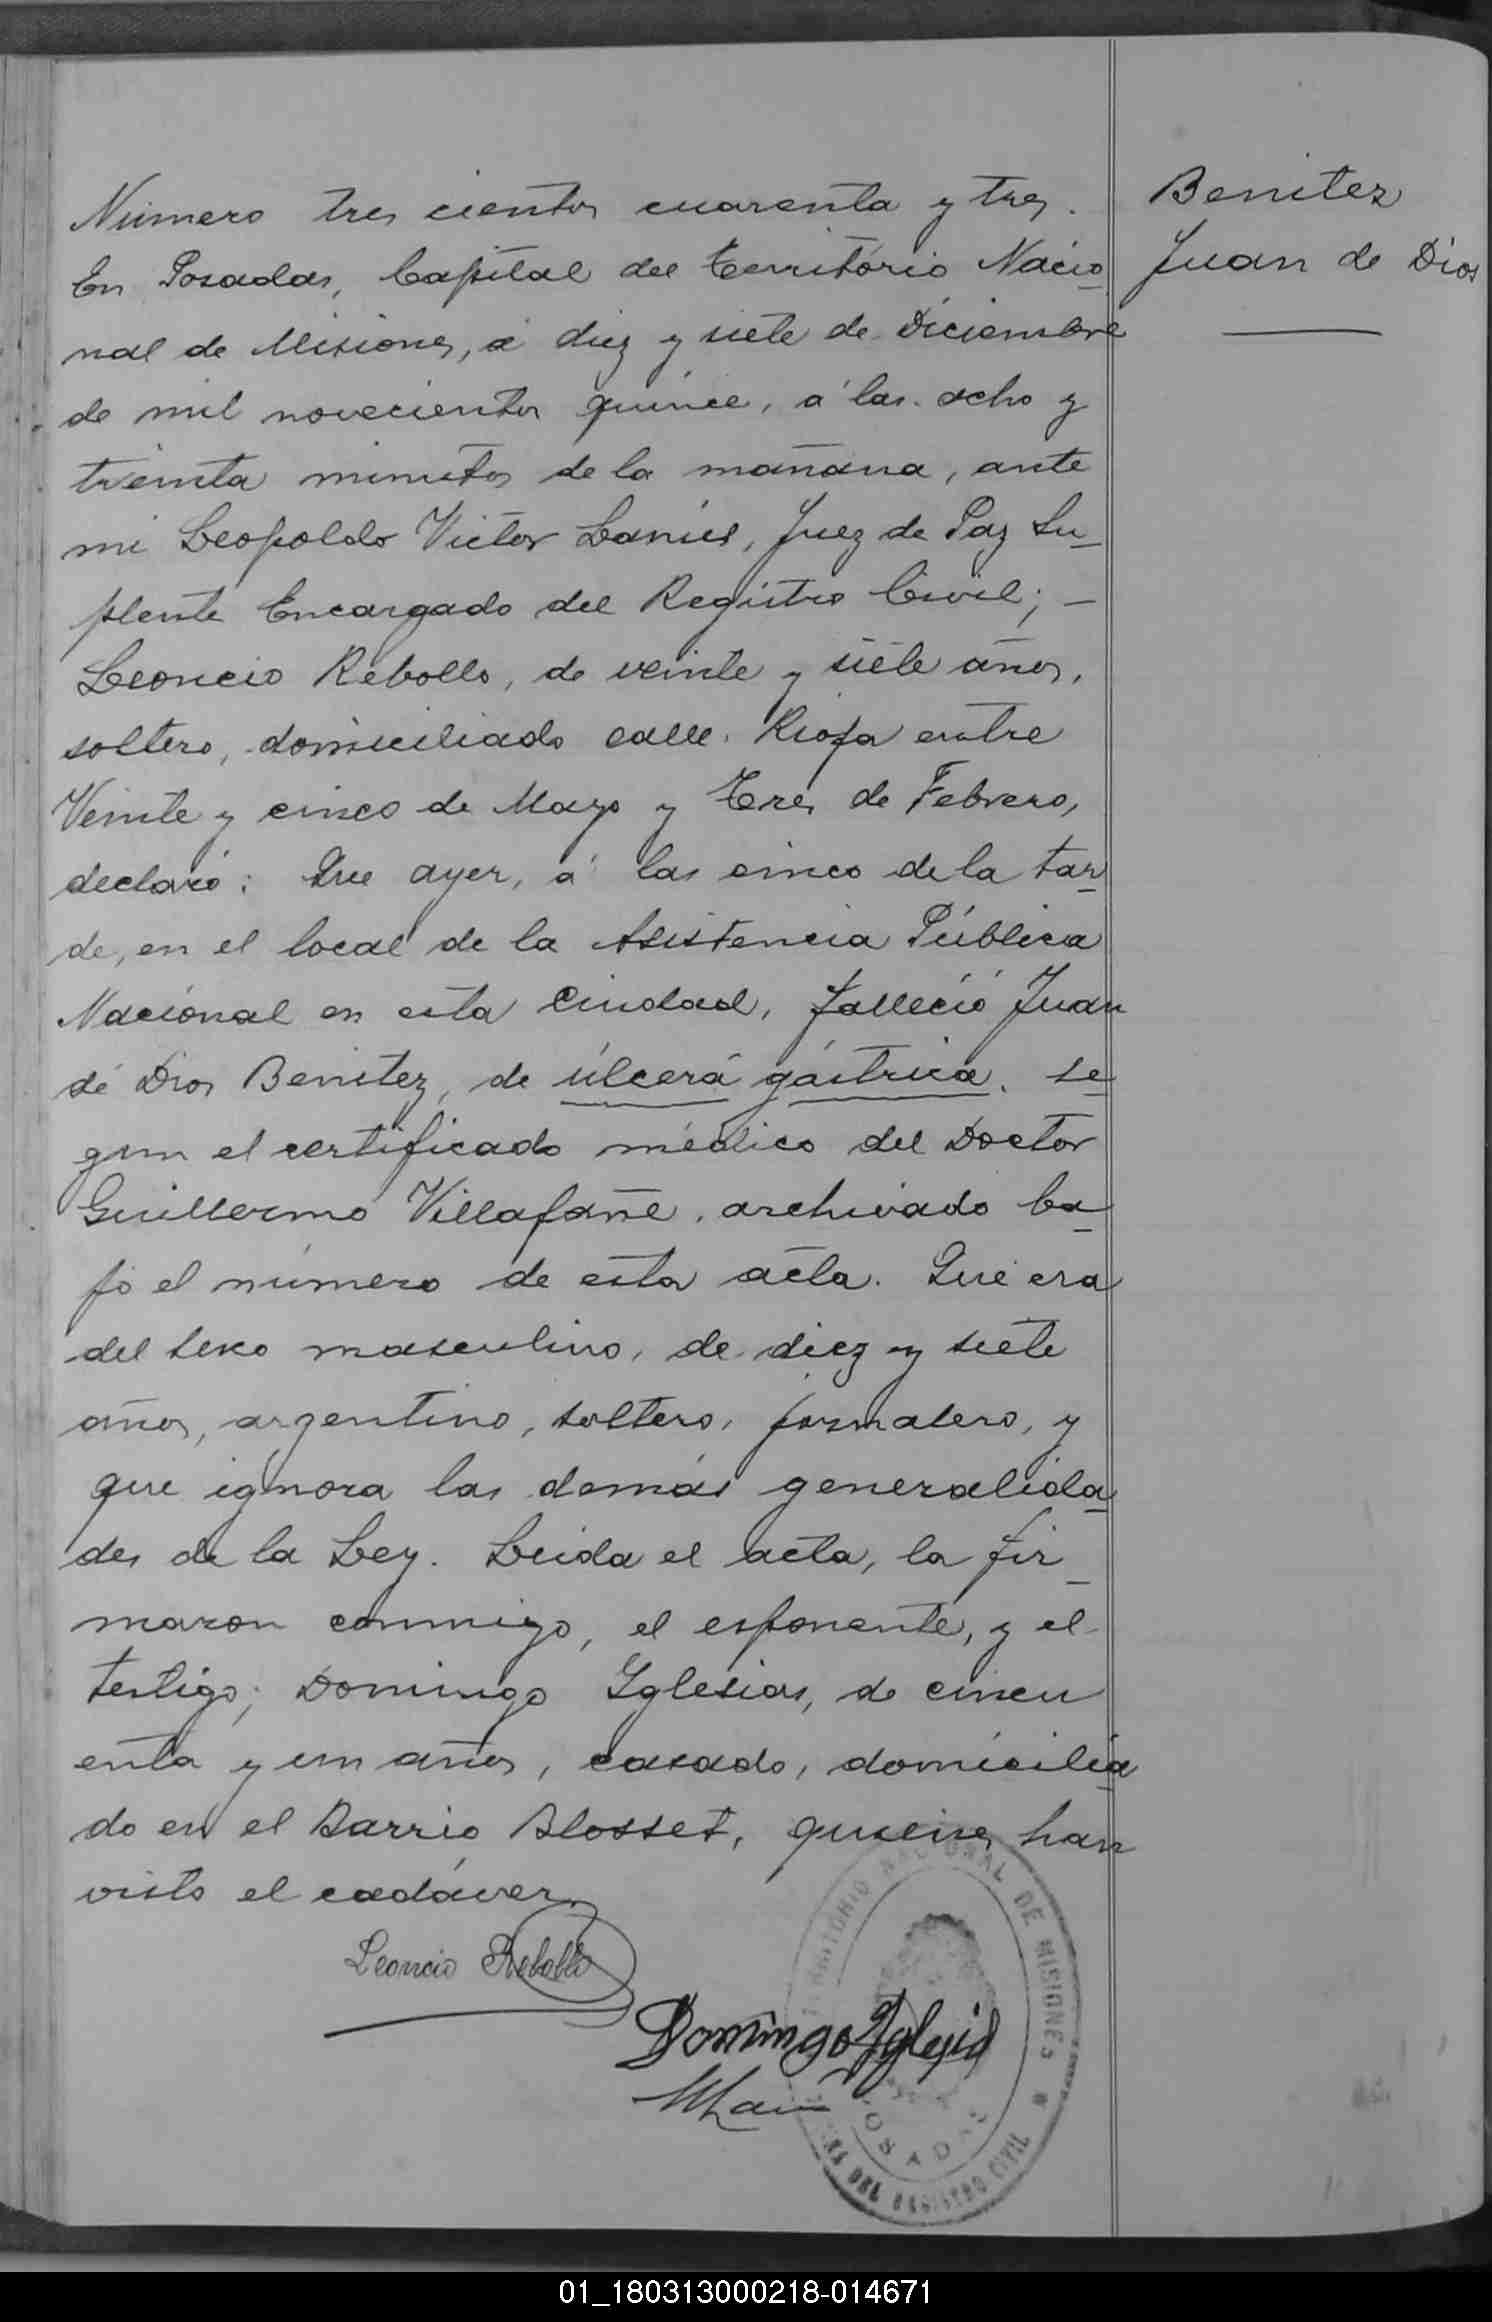 Benitez
Juan de Dios
Número tres cientos cuarenta y tres.
En Posadas, Capital del Territorio Nacio-
nal de Misiones, á diez y siete de Diciembre
de mil novecientos quince, á las ocho y
treinta minutos de la mañana, ante
mi Leopoldo Victor Lanús, Juez de Paz Su-
plente Encargado del Registro Civil; —
Leoncio Rebollo, de veinte y siete años,
soltero, domiciliado calle Rioja entre
Veinte y cinco de Mayo y Tres de Febrero,
declaró: Que ayer, á las cinco de la tar-
de, en el local de la Asistencia Pública
Nacional en esta Ciudad, falleció Juan
de Dios Benitez, de úlcera gástrica, se-
gun el certificado médico del Doctor
Guillermo Villafañe, archivado ba-
jo el número de esta acta. Que era
del sexo masculino, de diez y siete
años, argentino, soltero, jornalero, y
que ignora las demás generalida-
des de la Ley. Leida el acta, la fir-
maron conmigo, el esponente, y el
testigo; Domingo Yglesias, de cincu
enta y un años, casado, domicilia-
do en el Barrio Blosset, quienes han
visto el cadáver.
Leoncio Rebollo
Domingo Yglesia
TERRITORIO NACIONAL DE MISIONES
POSADAS
DEL REGISTRO CIVIL
01_180313000218-014671